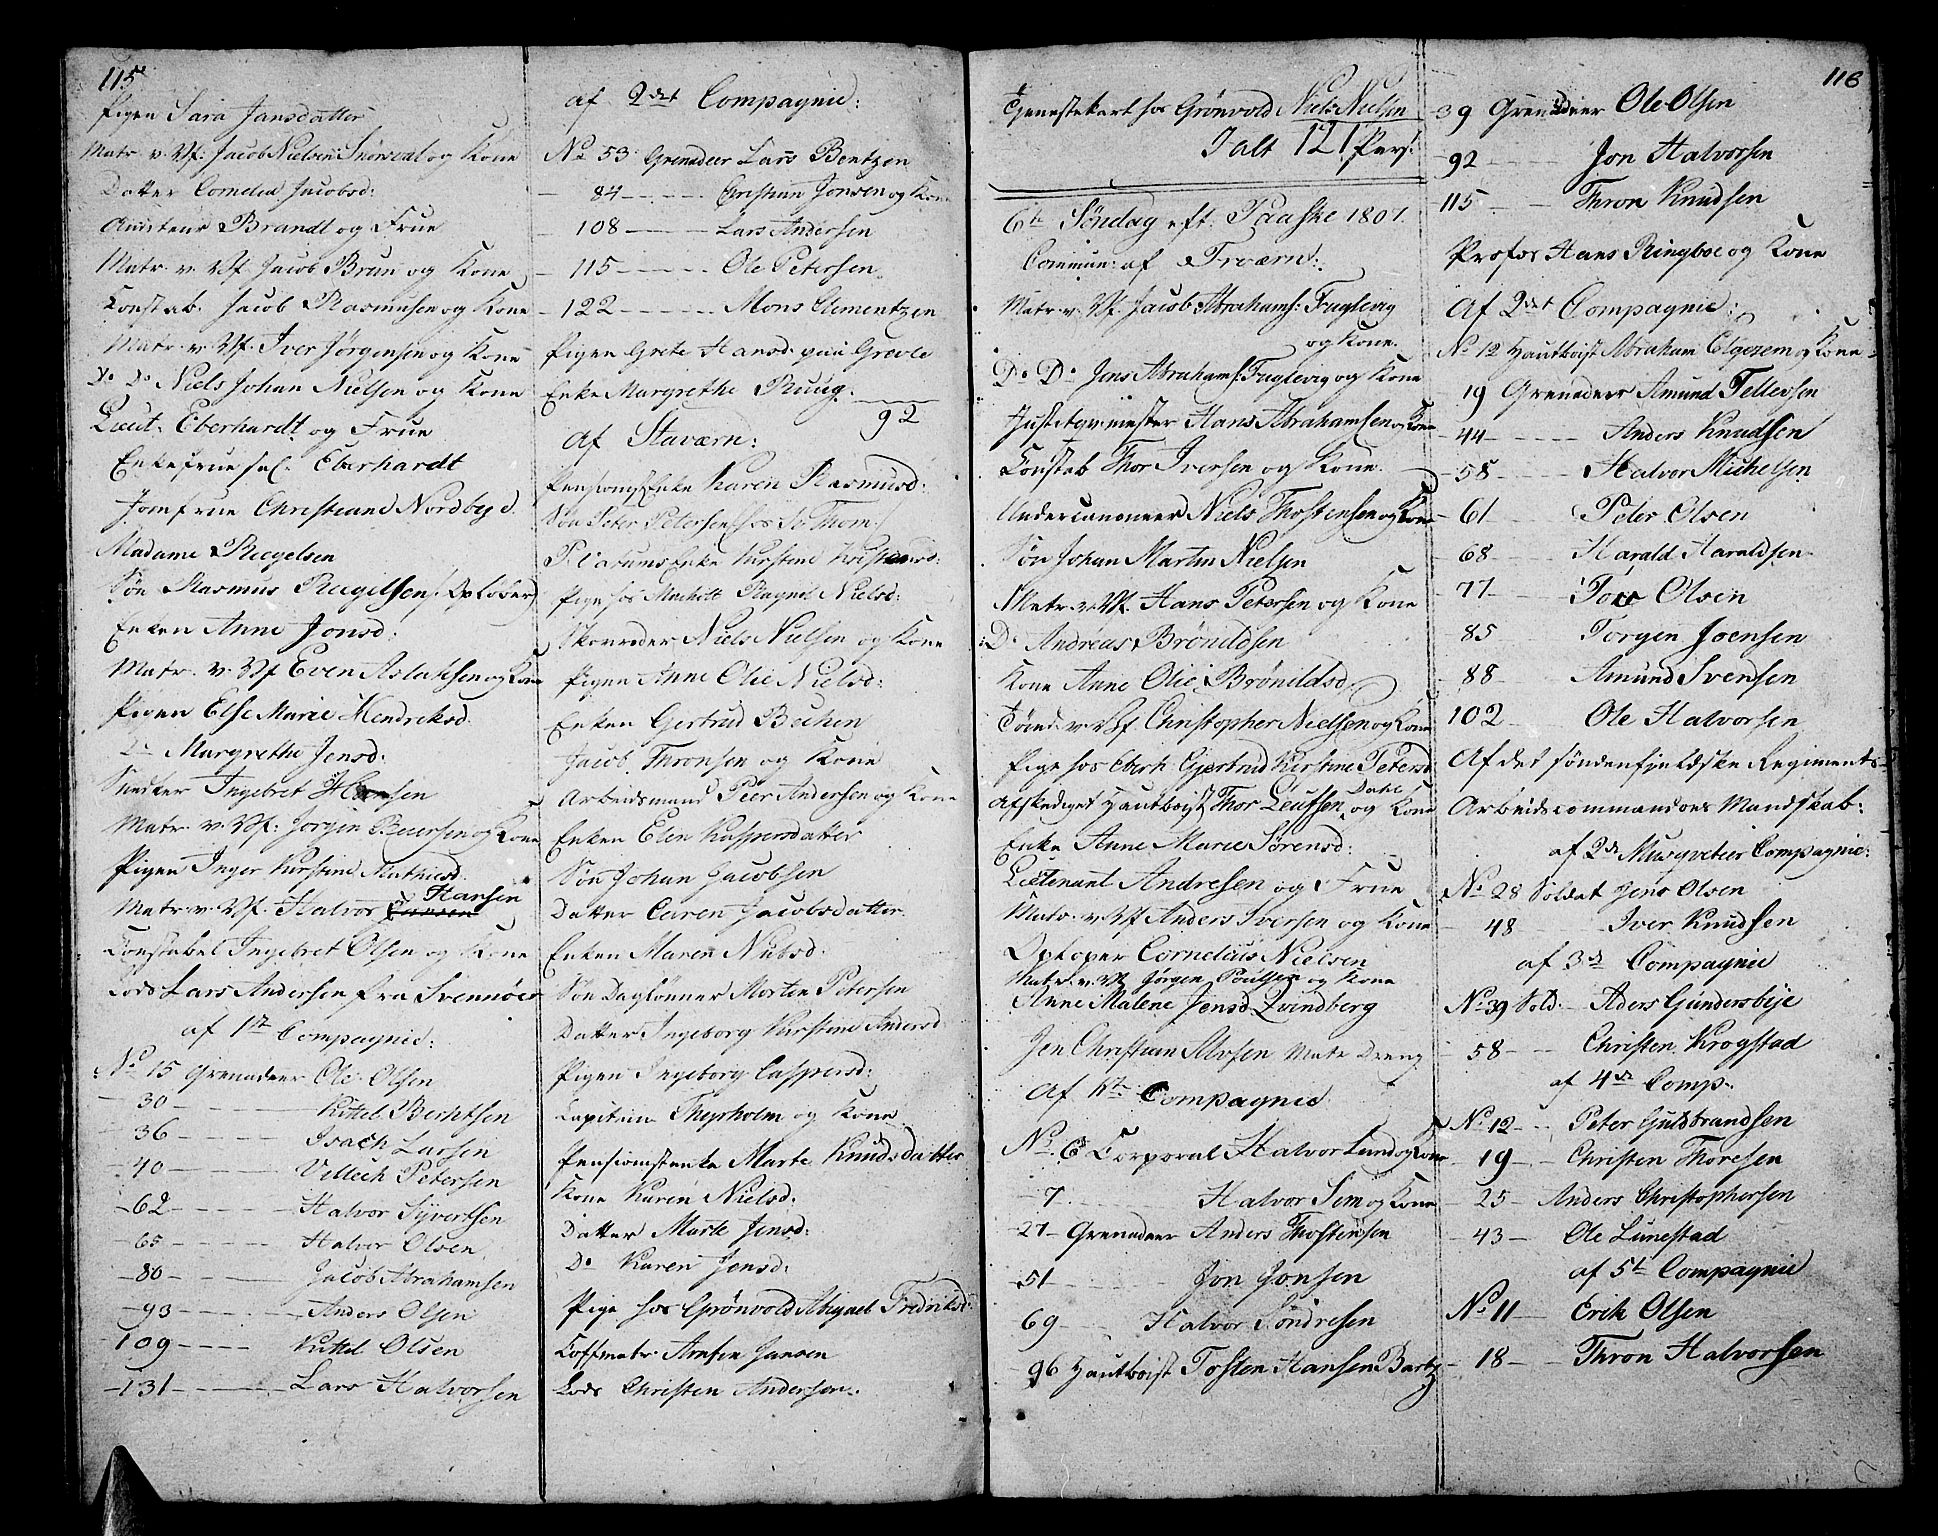 115
Pigen Sara Jansdatter
Matr. v. Vf: Jacob Nielsen Snørval og Kone
Datter Cornelia Jacobsd:
Brandt og Frue
Matr. v. Vf. Jacob Brun og Kone
Constab. Jacob Rasmusen og Kone
Matr. v. Vf. Iver Jørgensen og Kone
Do Do Niels Johan Nielsen og Kone
Lieut. Eberhardt og Frue
Enkefrue sal. Eberhardt
Jomfrue Christiane Nordbye d.
Madame Riegelsen
Søn Rasmus Riegelsen (: Opløber)
Enken Anne Jonsd:
Matr. v. Vf Even Aslaksen og Kone
Pigen Else Marie Hendriksd.
D Margrethe Jensd:
Snedker Ingebret
Matr. v. Vf: Jørgen Beiersen og Kone
Pigen Inger Kirstine Mathiesd.
Matr. v. Vf. Halvor Hansen
Constabel Ingebret Olsen og Kone
Lods Lars Andersen fra Svennøer
af 1st Compagnie:
No 15 Grenadeer Ole Olsen
30 Kittel Berntsen
36 Isach Larsen
40 Villich Petersen
62 Halvor Syvertsen
65 Halvor Olsen
80 Jacob Abrahamsen
93 Anders Olsen
109 Kittel Olsen
131 Lars Halvorsen
af 2det Compagnie:
No 53 Grenadeer Lars Bentzen
84 Christian Jonsen og Kone
108 Lars Andersen
115 Ole Petersen
122 Mons Clementzen
Pigen Grete Hansd. paa Grevle
Enke Margrethe Ruug.
92
Af Staværn:
PensionsEnke Karen Rasmusd:
Søn Peter Petersen (hos Thom:)
Enke Kirstine
Pige hos Macholt Ragnil Nielsd:
Skoereder Niels Nielsen og Kone
Pigen Anne Olie Nielsd:
Enken Gertrud Buchen
Jacob Thronsen og Kone
Arbeidsmand Peer Andersen og Kone
Enken Elen Kaspersdatter
Søn Johan Jacobsen
Datter Caren Jacobsdatter
Enken Maren Nielsd:
Søn Daglønner Morten Petersen
Datter Ingeborg Kirstine Andersd
Pigen Ingeborg Caspersd:
Capitain Theyrholm og Kone
Pensionstenke Marte Knudsdatter
Kone Karen Nielsd:
Datter Marte Jensd:
Do Karen Jensd:
Pige hos Grønvold Abigael Fredriksd:
Coffmatr. Arnsen Jansen
Lods Christen Andersen.
Tjenestekarl hos Grønvold Niels Nielsen
Ialt 121 Pers.
6te Søndag eft. Paaske 1801.
Commun: af Fr.værn:
Matr. v. Vf. Jacob Abrahams: Fuglevig
og Kone.
Do Do Jens Abrahams: Fuglevig og Kone
Hans Abrahamsen og Kone
Constab Thor Iversen og Kone.
Undercanoneer Niels Thostensen og Kone
Søn Johan Martin Nielsen
Matr. v. Vf. Hans Petersen og Kone
Do Andreas Brønildsen
Kone Anne Olie Brønildsd.
Tømd. v. Vf. Christopher Nielsen og Kone
Pige hos Eberh. Gjertrud Kirstine Petersd
Afskediget Hautboist Thor Leufsen Dahl og Kone
Enke Anne Marie Sørensd:
Lieutenant Andresen og Frue
Matr. v. Vf Anders Iversen og Kone
Opløper Cornelius Nielsen
Matr. v. Vf. Jørgen Poulsen og Kone
Anne Malene Jensd.
Jen Christian Alvsen Matr Dreng
Af 1st Compagnie
No 6 Corporal Halvor Lund og Kone
7 Halvor Som og Kone
27 Grenadeer Anders Thostensen
51 Jon Jonsen
69 Halvor Sondresen
96 Hautboist Tosten Hansen Bartz
116
39 Grenadeer Ole Olsen
92 Jon Halvorsen
115 Thron Knudsen
Profos Hans Ringboe og Kone
Af 2det Compagnie:
No 12 Hautboist Abraham Elgezem og Kone
19 Grenadeer Amund Tellefsen
44 Anders Knudsen
58 Halvor Michelsen
61 Peter Olsen
68 Harald Haraldsen
77 Tov Olsen
85 Torgen Joensen
88 Amund Svensen
102 Ole Halvorsen
Af det søndenfjeldske Regiments
Arbeidscommandoes Mandskab:
af 2d Musqveteer Compagnie:
No 28 Soldat Jens Olsen
48 Iver Knudsen
af 3d Compagnie
No 39 Sold. Aders Gundersbye
58 Christen Krogstad
af 4d Comp.
No 12 Peter Guldbrandsen
19 Christen Thoresen
25 Anders Christophersen
43 Ole Lunestad
af 5t Compagnie
No 11 Erik Olsen
18 Thron Halvorsen